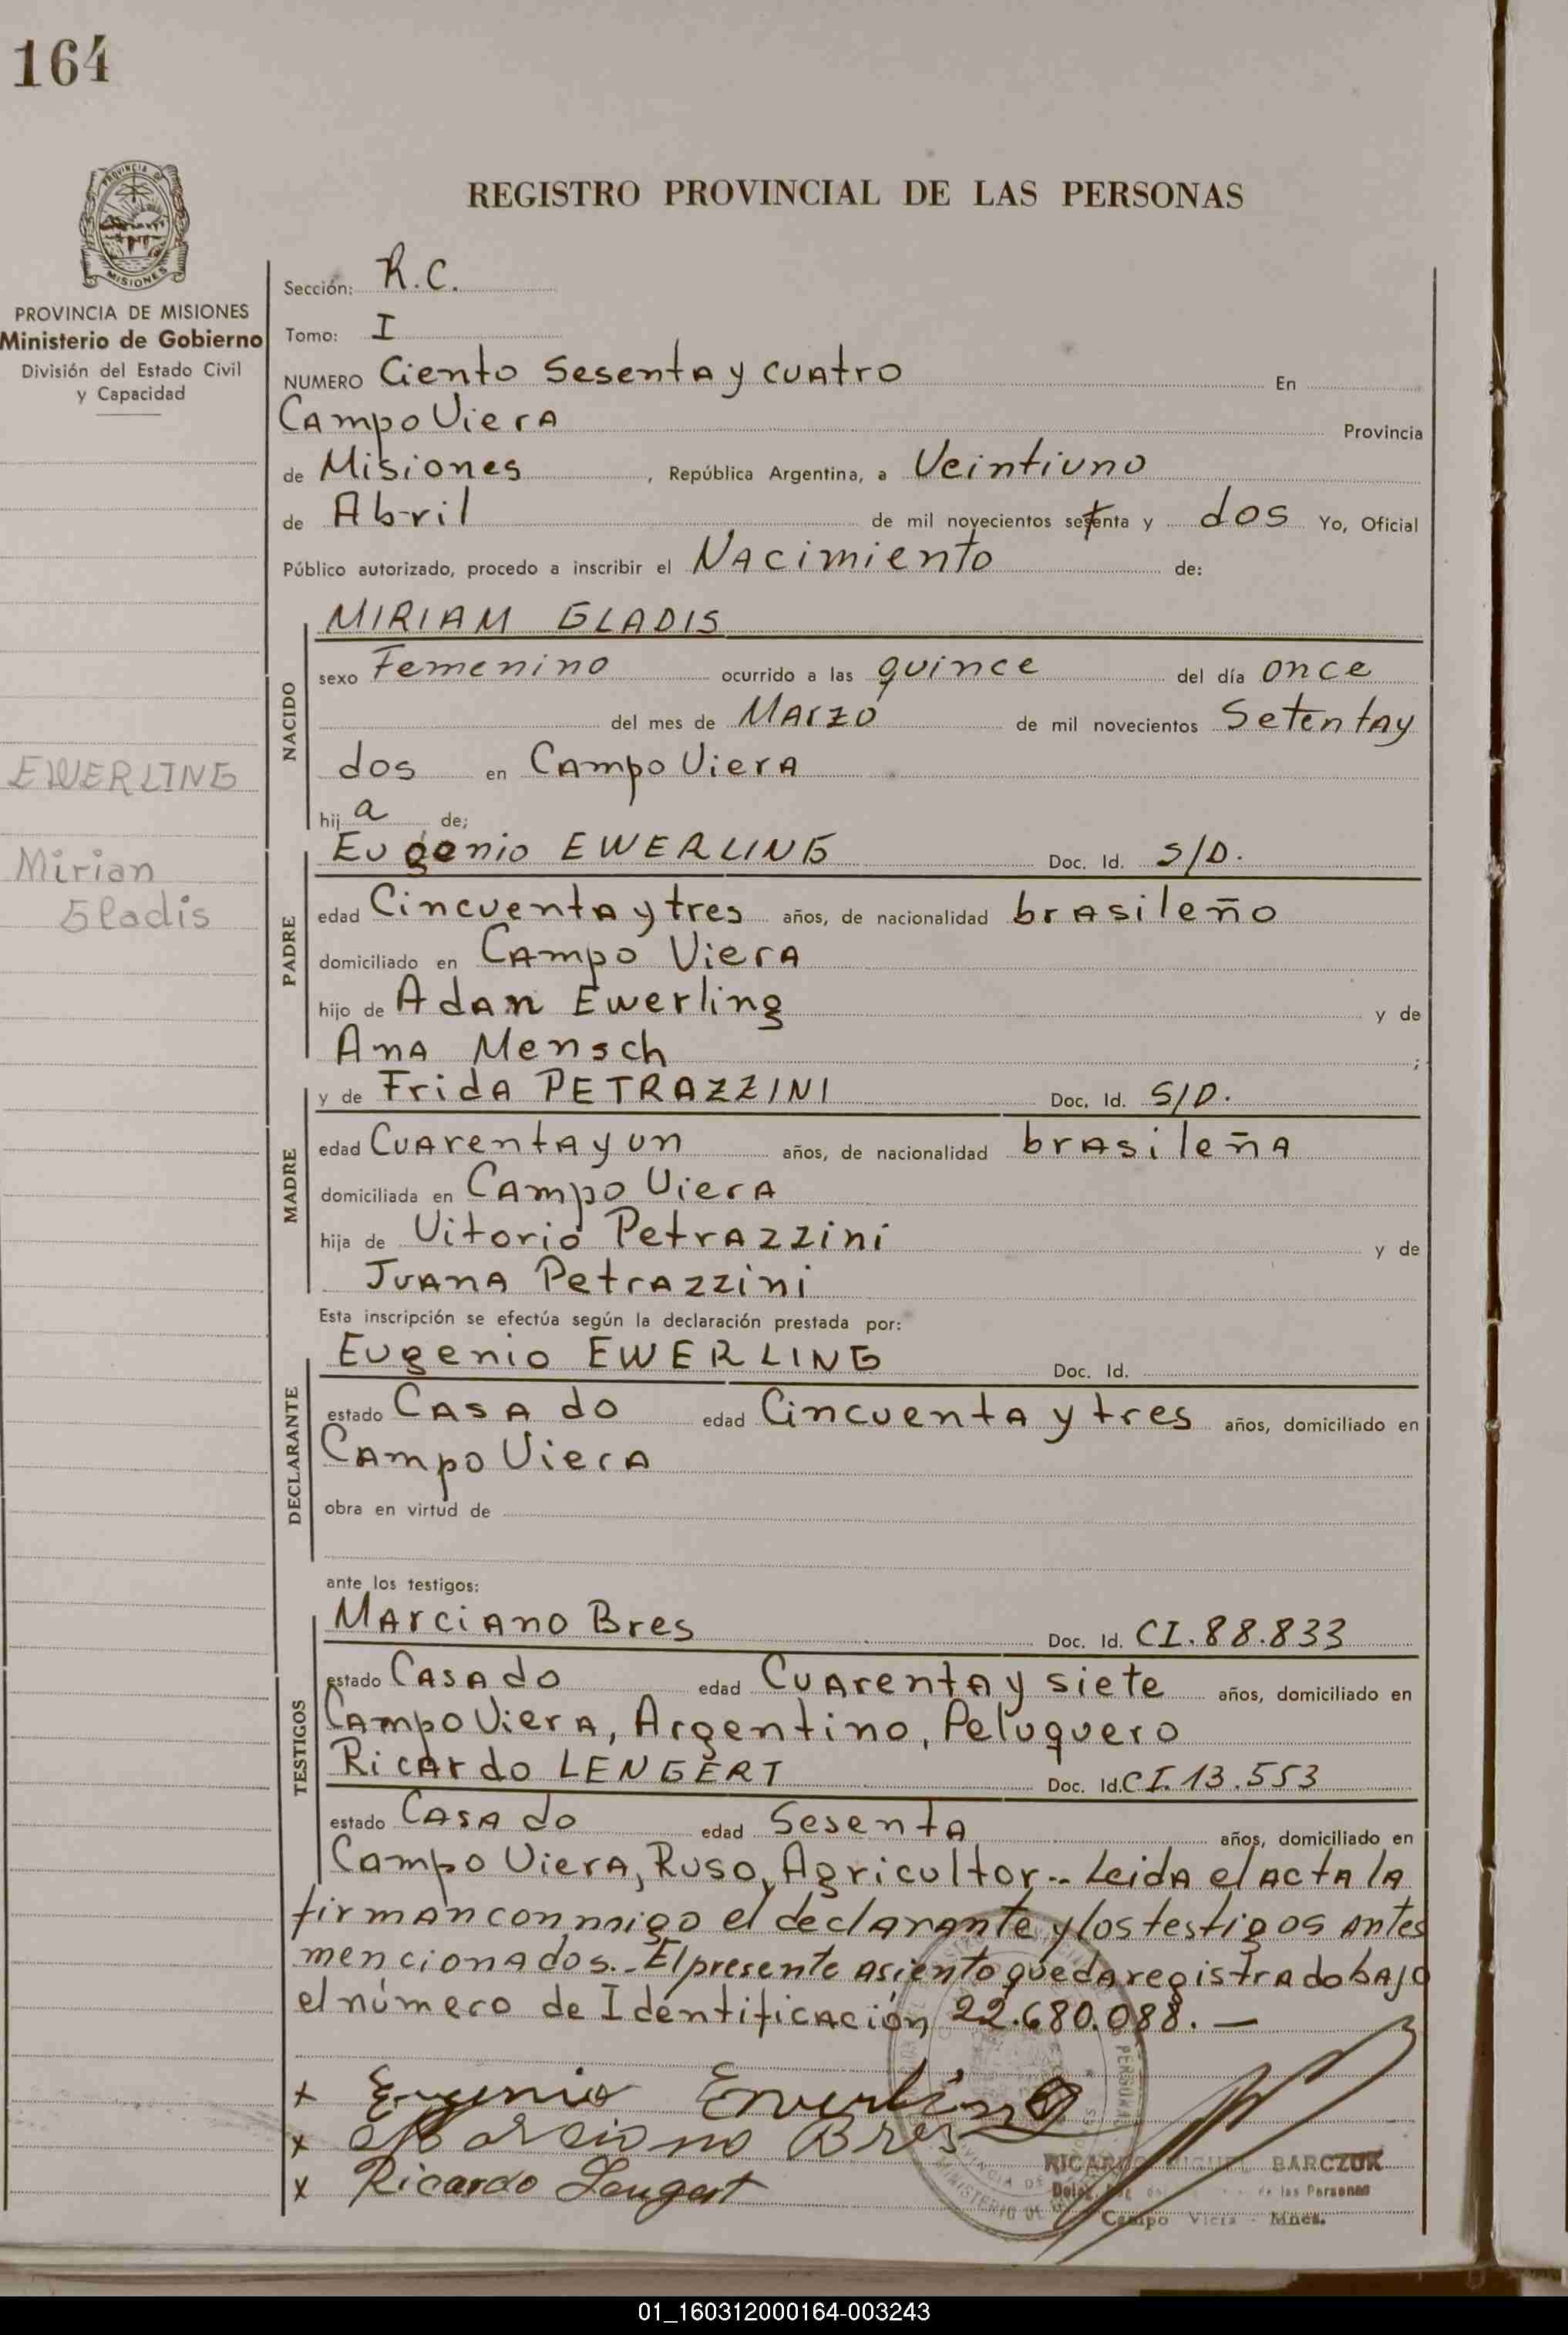 164
PROVINCIA DE
MISIONES
PROVINCIA DE MISIONES
Ministerio de Gobierno
División del Estado Civil
y Capacidad
EWERLING
Mirian
Gladis
REGISTRO PROVINCIAL DE LAS PERSONAS
Sección: R.C.
Tomo: I
NUMERO Ciento Sesenta y cuatro En
Campo Viera Provincia
de Misiones, República Argentina, a Veintiuno
de Abril de mil novecientos setenta y dos Yo, Oficial
Público autorizado, procedo a inscribir el Nacimiento de:
NACIDO
MIRIAM GLADIS
sexo Femenino ocurrido a las quince del día once
del mes de Marzo de mil novecientos Setenta y
dos en Campo Viera
hij a de;
PADRE
Eugenio EWERLING Doc. Id. S/D.
edad Cincuenta y tres años, de nacionalidad brasileño
domiciliado en Campo Viera
hijo de Adan Ewerling y de
Ana Mensch ;
MADRE
y de Frida PETRAZZINI Doc. Id. S/D.
edad Cuarenta y un años, de nacionalidad brasileña
domiciliada en Campo Viera
hija de Vitorio Petrazzini y de
Juana Petrazzini
Esta inscripción se efectúa según la declaración prestada por:
DECLARANTE
Eugenio EWERLING Doc. Id.
estado Casado edad Cincuenta y tres años, domiciliado en
Campo Viera
obra en virtud de
ante los testigos:
TESTIGOS
Marciano Bres Doc. Id. CI. 88.833
estado Casado edad Cuarenta y siete años, domiciliado en
Campo Viera, Argentino, Peluquero
Ricardo LENGERT Doc. Id. CI. 13.553
estado Casado edad Sesenta años, domiciliado en
Campo Viera, Ruso, Agricultor.- Leida el acta la
firman conmigo el declarante y los testigos antes
mencionados.- El presente asiento queda registrado bajo
el número de Identificación 22.680.088. —
x Eugenio Ewerling
x Marciano Bres
x Ricardo Lengert
RICARDO MIGUEL BARCZUK
de las Personas
Campo Viera - Mnes.
01_160312000164-003243